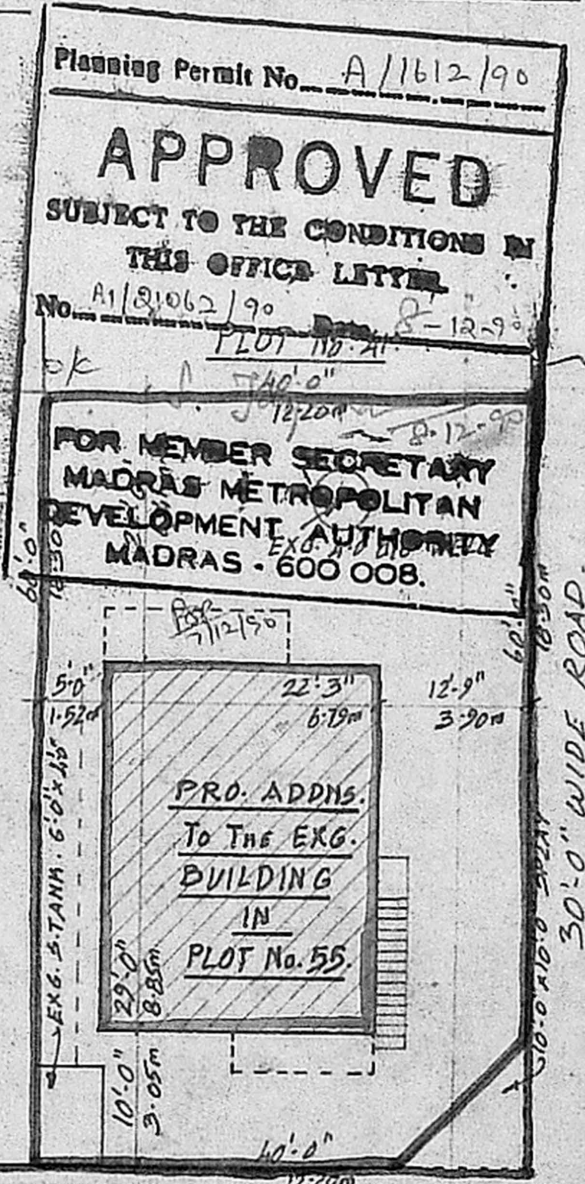 Planning Permit No. A/1612/90
APPROVED
SUBJECT TO THE CONDITIONS IN
THIS OFFICE LETTER
No. A1/21062/90 Date 8-12-90
PLOT No. 41.
O/C
40'-0"
12.20m
8-12-90
FOR MEMBER SECRETARY
MADRAS METROPOLITAN
DEVELOPMENT AUTHORITY
MADRAS - 600 008.
60'-0"
18.30m
60'-0"
18.30m
7/12/90
5'-0"
1.52m
22'-3"
6.79m
12'-9"
3.90m
PRO. ADDNS.
TO THE EXG.
BUILDING
IN
PLOT No. 55.
EXG. S. TANK. 6'0" X
29'-0"
8.85m
10'-0"
3.05m
10'-0" X 10'-0" SPLAY
30'-0" WIDE ROAD.
40'-0"
12.20m